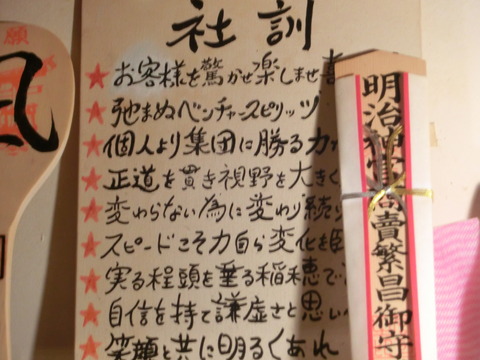 社訓
お客様を驚かせ楽しませ喜
弛まぬベンチャースピリッツ
個人より集団に勝る力
正道を貫き視野を大きく
変わらない為に変わり続
スピードこそ力自ら変化を
実る程頭を垂る稲穂で
自信を持て謙虚さと思い
笑顔と共に明るくあれ
明治神宮商賣繁昌御守
願